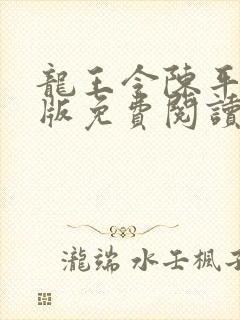 龍王令陳平
版免費閱讀
瀧端 水壬楓子